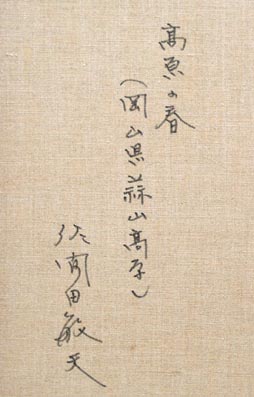 高原の春
(岡山県蒜山高原)
佐間田敏夫